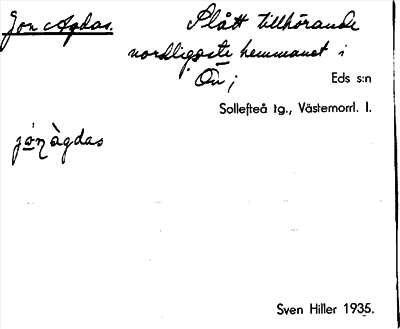 Jon Agdas. Slått tillhörande
nordligaste hemmanet i
Ön; Eds s:n
Sollefteå tg., Västernorrl. l.
jón àgdas
Sven Hiller 1935.